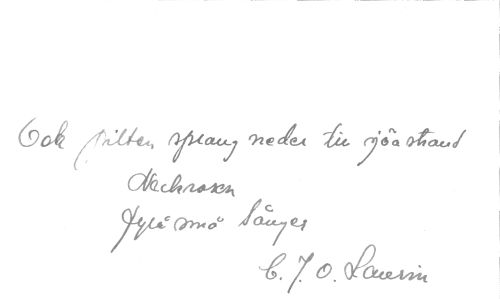 Och pilten sprang neder till sjöastrand
Neckrosen
Fyra små Sånger
C. J. O. Laurin